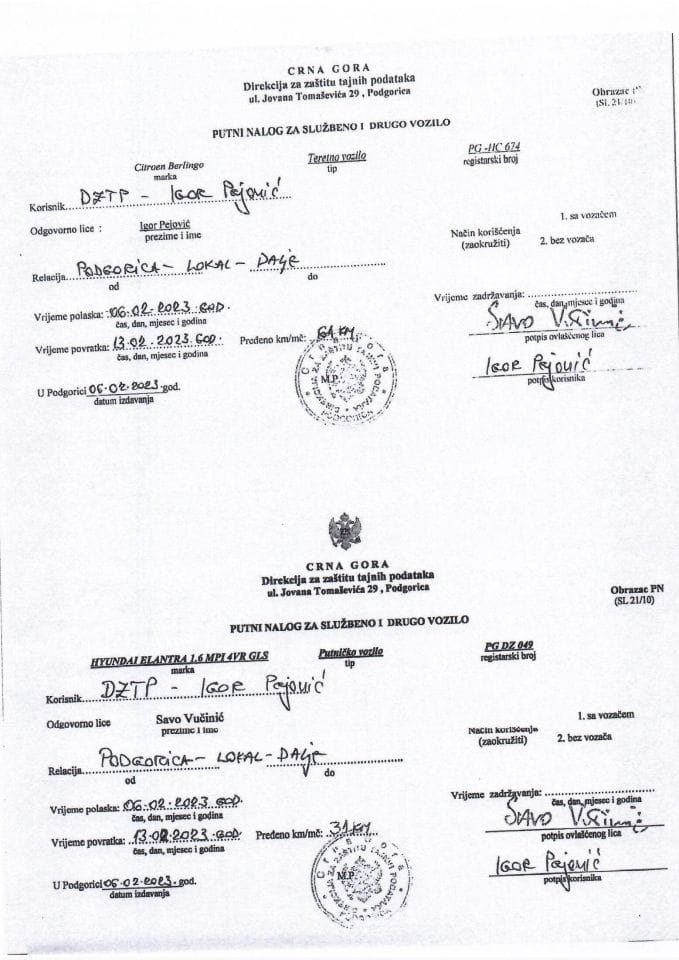 CRNA GORA
Direkcija za zaštitu tajnih podataka
ul. Jovana Tomaševića 29 , Podgorica
Obrazac
(Sl. 21/10)
PUTNI NALOG ZA SLUŽBENO I DRUGO VOZILO
Citroen Berlingo Teretno vozilo PG -HC 674
marka tip registarski broj
Korisnik DZTP - IGOR Pejović
Odgovorno lice : Igor Pejović
prezime i ime
Način korišćenja 1. sa vozačem
(zaokružiti) 2. bez vozača
Relacija PODGORICA - LOKAL - DALJE
od do
Vrijeme polaska: 06.02.2023.GOD. Vrijeme zadržavanja:
čas, dan, mjesec i godina čas, dan, mjesec i godina
SAVO
Vrijeme povratka: 13.02.2023.GOD. Pređeno km/mč: 61 KM potpis ovlašćenog lica
čas, dan, mjesec i godina
IGOR Pejović
potpis korisnika
Crna Gora
DIREKCIJA ZA ZAŠTITU TAJNIH PODATAKA
PODGORICA
M.P.
U Podgorici 06.02.2023.god.
datum izdavanja
CRNA GORA
Direkcija za zaštitu tajnih podataka
ul. Jovana Tomaševića 29 , Podgorica
Obrazac PN
(SL 21/10)
PUTNI NALOG ZA SLUŽBENO I DRUGO VOZILO
HYUNDAI ELANTRA 1,6 MPI 4VR GLS Putničko vozilo PG DZ 049
marka tip registarski broj
Korisnik DZTP - IGOR Pejović
Odgovorno lice Savo Vučinić
prezime i ime
Način korišćenja 1. sa vozačem
(zaokružiti) 2. bez vozača
Relacija PODGORICA - LOKAL - DALJE
od do
Vrijeme polaska: 06.02.2023 GOD. Vrijeme zadržavanja:
čas, dan, mjesec i godina čas, dan, mjesec i godina
SAVO
Vrijeme povratka: 13.02.2023.GOD Pređeno km/mč: 31 KM potpis ovlašćenog lica
čas, dan, mjesec i godina
IGOR Pejović
potpis korisnika
Crna Gora
M.P.
U Podgorici 06.02.2023.god.
datum izdavanja